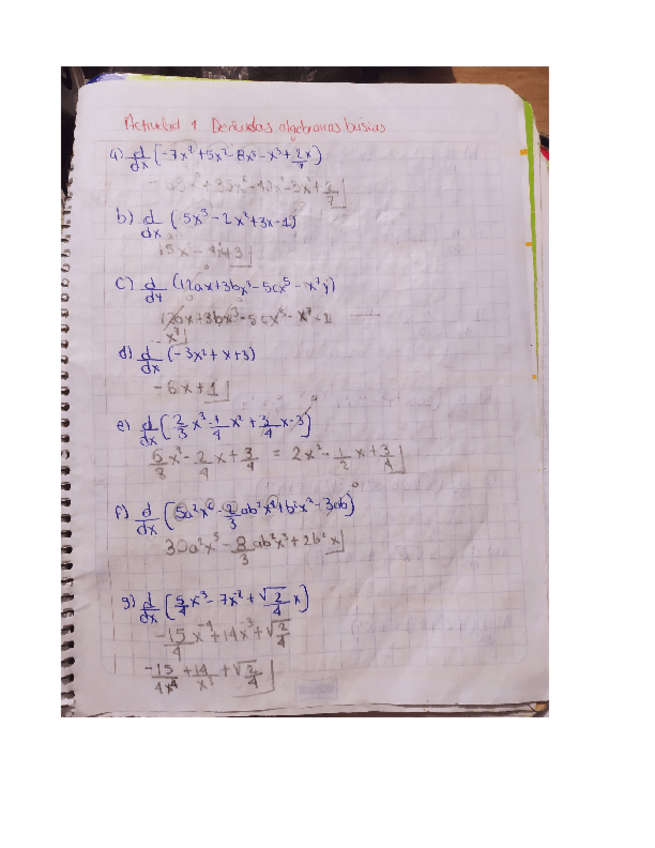 Actividad 1 Derivadas algebraicas basicas
a) d/dx (-7x² + 5x⁷ - 8x⁵ - x³ + 2x/7)
b) d/dx (5x³ - 2x² + 3x - 1)
15x² - 4x + 3
c) d/dy (12ax + 3bx³ - 5cx⁵ - x³y)
- x³
d) d/dx (-3x² + x + 3)
-6x + 1
e) d/dx (2/3 x³ - 1/4 x² + 3/4 x - 3)
6/3 x² - 2/4 x + 3/4 = 2x² - 1/2 x + 3/4
f) d/dx (5a²x⁶ - 2/3 ab²x⁴ + b²x² - 3ab)
30a²x⁵ - 8/3 ab²x³ + 2b²x
g) d/dx (5/4 x⁻³ - 7x⁻² + √2/4 x)
-15/4 x⁻⁴ + 14x⁻³ + √2/4
-15/4x⁴ + 14/x³ + √2/4